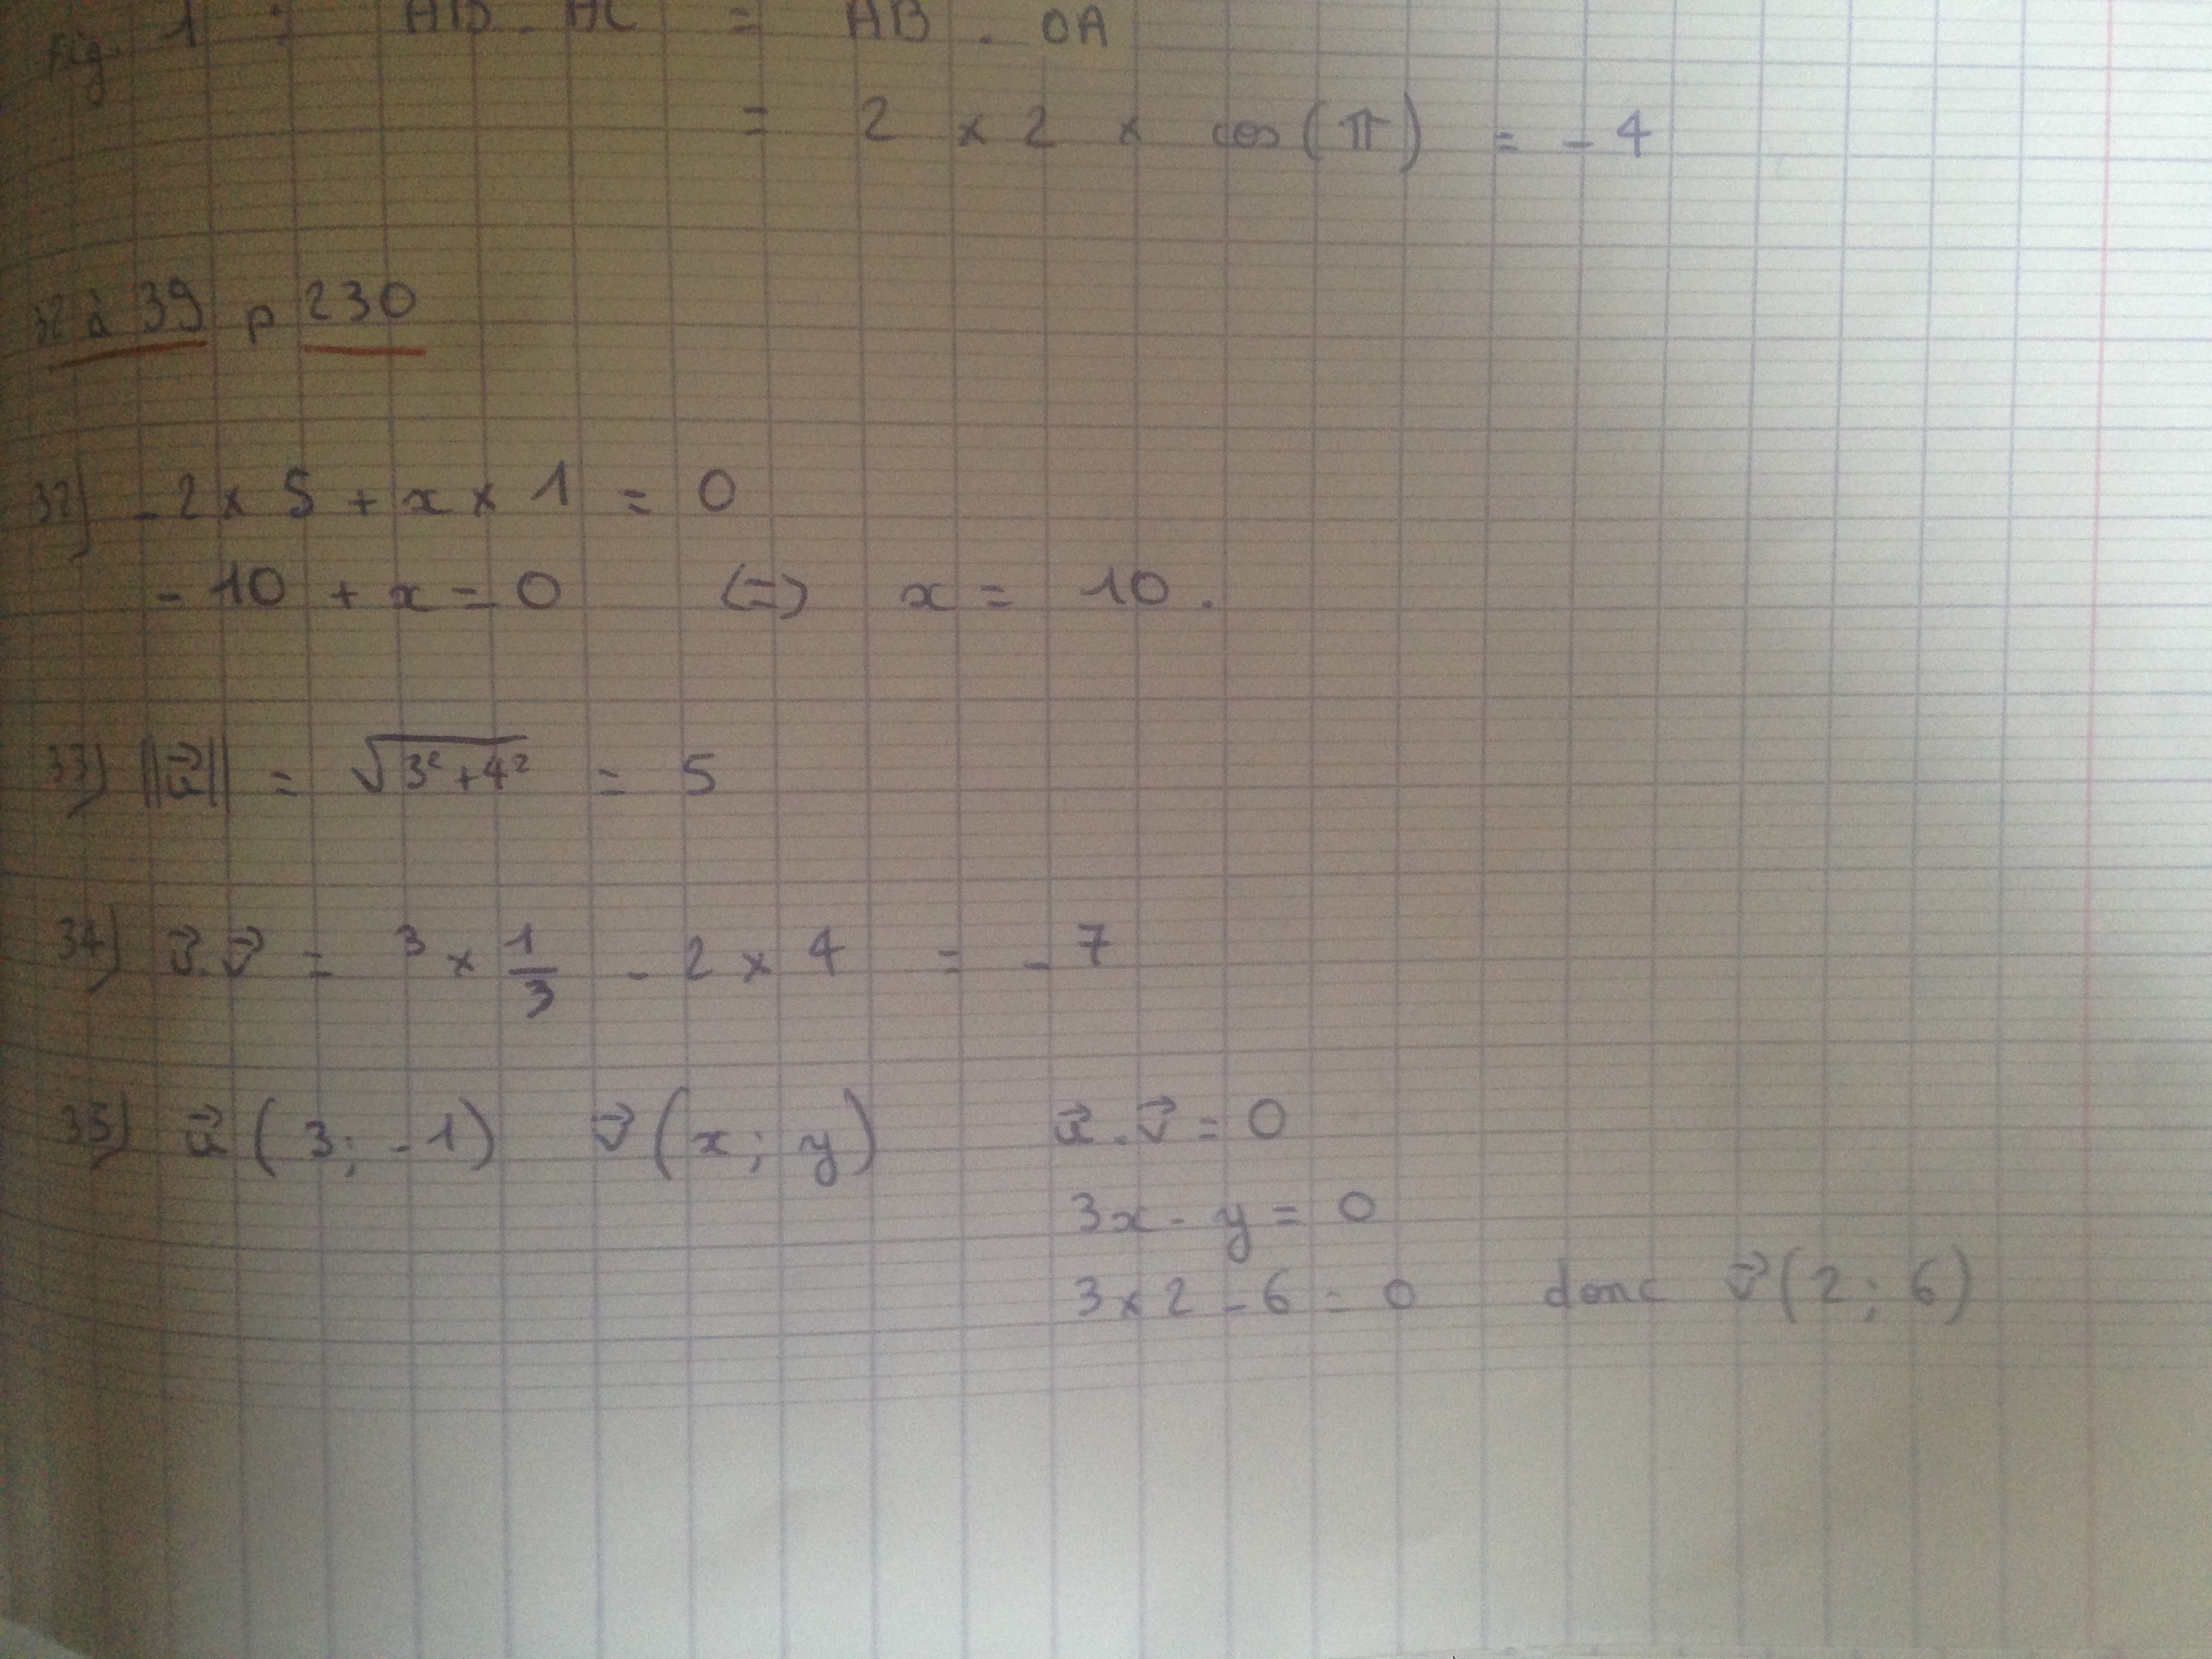 fig. 1 : AB . AC = AB . OA
= 2 x 2 x cos(π) = -4
32 à 39 p 230
32) -2 x 5 + x x 1 = 0
-10 + x = 0 (=) x = 10.
33) ||u⃗|| = √3²+4² = 5
34) u⃗.v⃗ = 3 x 1/3 - 2 x 4 = -7
35) u⃗ (3; -1) v⃗ (x; y) u⃗.v⃗ = 0
3x - y = 0
3 x 2 - 6 = 0 donc v⃗ (2; 6)